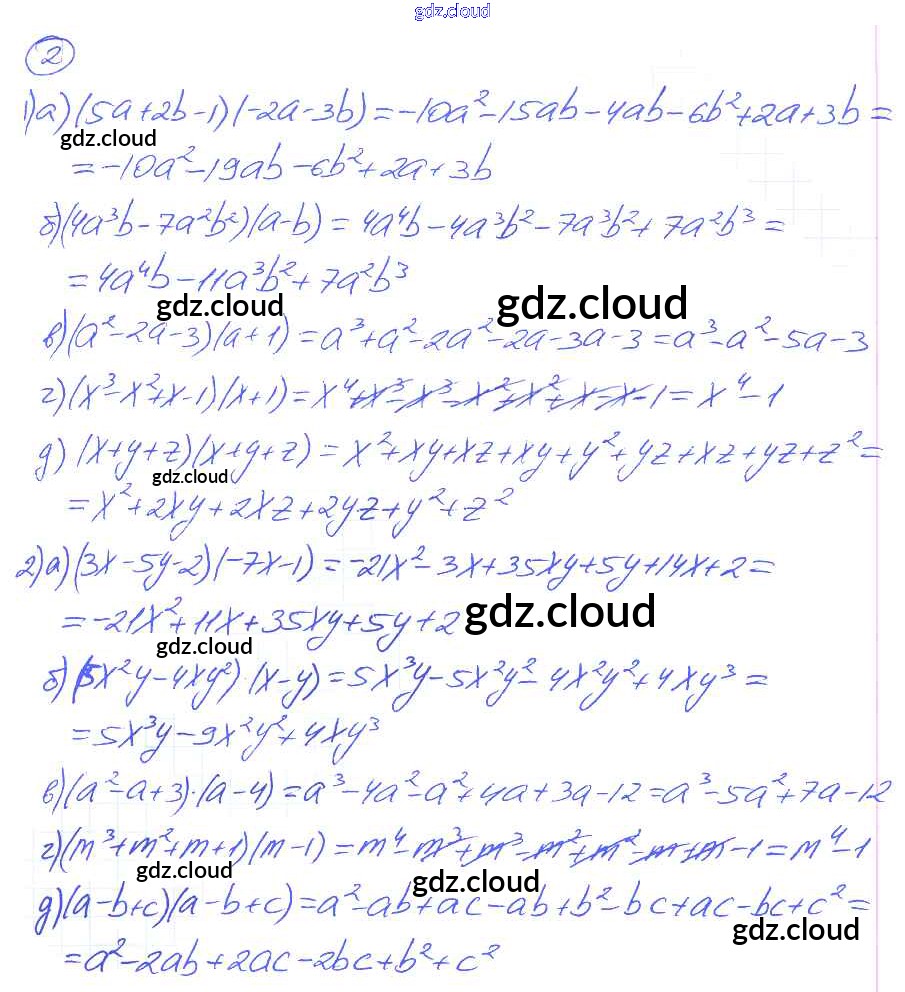 gdz.cloud
2
1) а) (5a+2b-1)(-2a-3b) = -10a²-15ab-4ab-6b²+2a+3b =
gdz.cloud
= -10a²-19ab-6b²+2a+3b
б) (4a³b-7a²b²)(a-b) = 4a⁴b-4a³b²-7a³b²+7a²b³ =
= 4a⁴b-11a³b²+7a²b³
gdz.cloud gdz.cloud
в) (a²-2a-3)(a+1) = a³+a²-2a²-2a-3a-3 = a³-a²-5a-3
г) (x³-x²+x-1)(x+1) = x⁴+x³-x³-x²+x²+x-x-1 = x⁴-1
д) (x+y+z)(x+y+z) = x²+xy+xz+xy+y²+yz+xz+yz+z² =
gdz.cloud
= x²+2xy+2xz+2yz+y²+z²
2) а) (3x-5y-2)(-7x-1) = -21x²-3x+35xy+5y+14x+2 =
= -21x²+11x+35xy+5y+2
gdz.cloud
gdz.cloud
б) (5x²y-4xy²)·(x-y) = 5x³y-5x²y²-4x²y²+4xy³ =
= 5x³y-9x²y²+4xy³
в) (a²-a+3)·(a-4) = a³-4a²-a²+4a+3a-12 = a³-5a²+7a-12
г) (m³+m²+m+1)(m-1) = m⁴-m³+m³-m²+m²-m+m-1 = m⁴-1
gdz.cloud gdz.cloud
д) (a-b+c)(a-b+c) = a²-ab+ac-ab+b²-bc+ac-bc+c² =
gdz.cloud
= a²-2ab+2ac-2bc+b²+c²